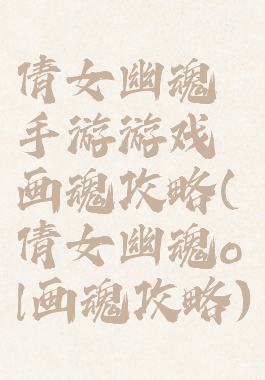 倩女幽魂
手游游戏
画魂攻略(
倩女幽魂o
l画魂攻略)